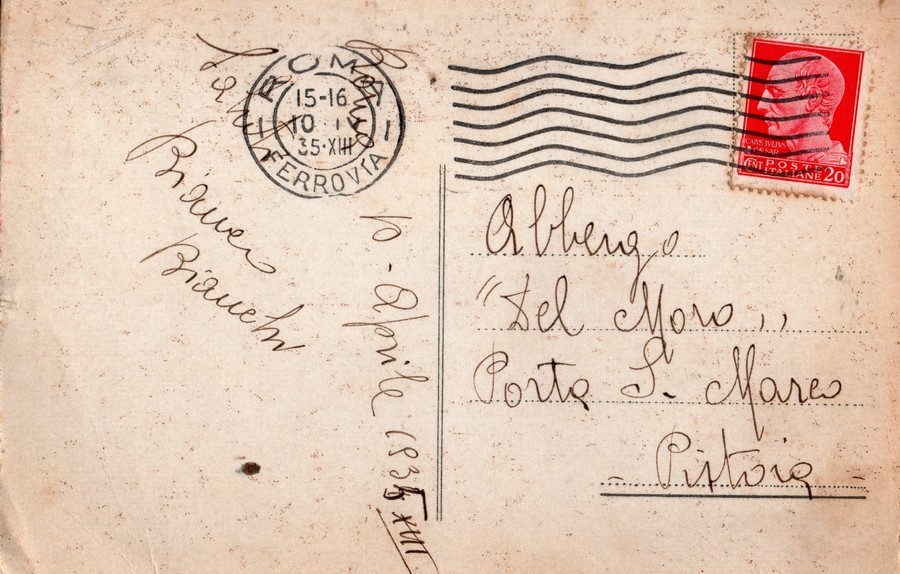 ROMA
15-16
10 · IV
35·XIII
FERROVIA
CAIVS IVLIVS
CAESAR
POSTE
ITALIANE
CENT 20
Bianca
Bianchi
10 - Aprile 1935 XIII
Albergo
"Del Moro"
Porta S. Marco
- Pistoia -